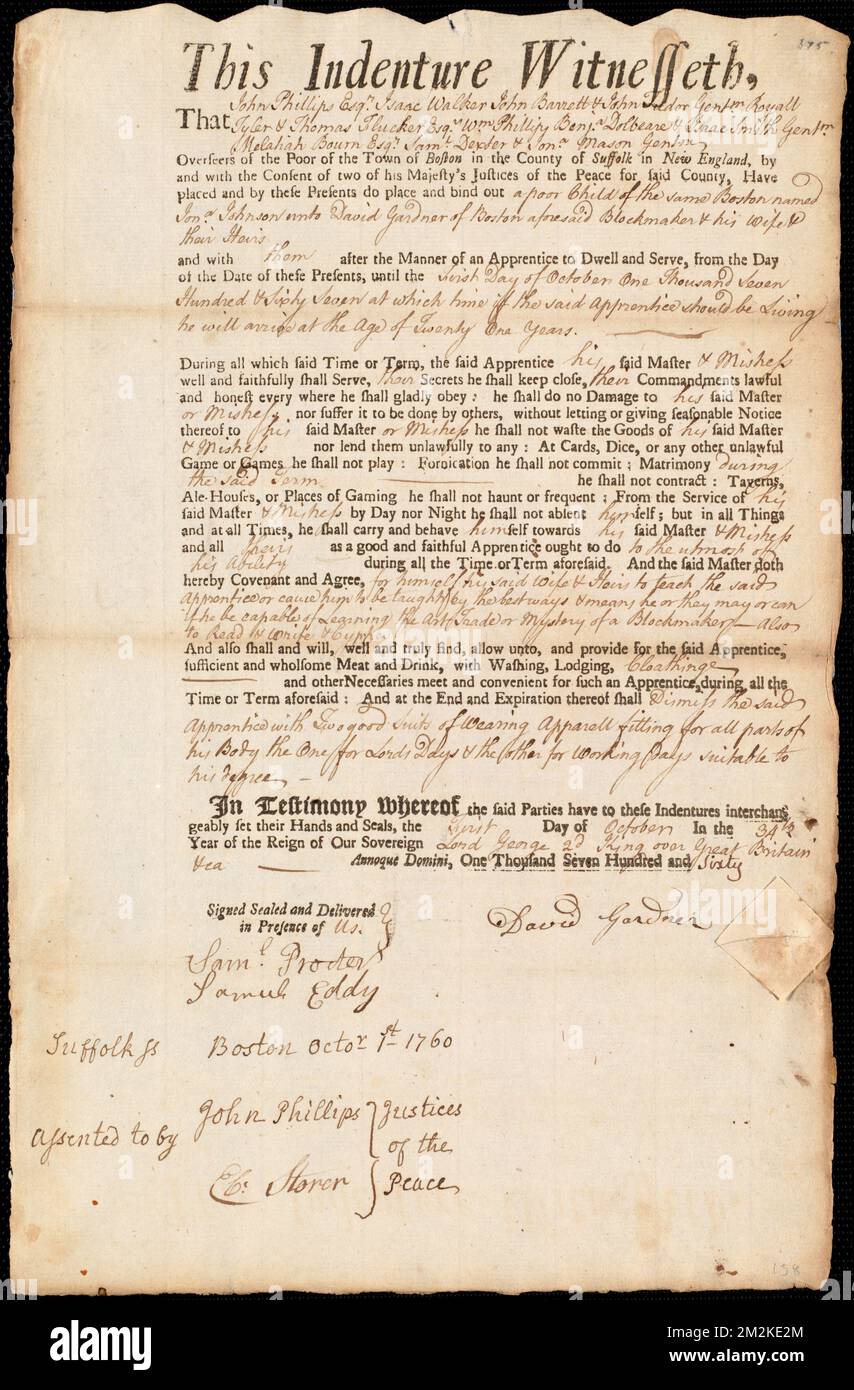 175.
This Indenture Witnesseth,
John Phillips Esqr. Isaac Walker John Barrett & John Gentmn Royall
That Tyler & Thomas Flucker Esqrs Wm Phillips Benja. Dolbeare & Isaac Smith Gentmn
Melatiah Bourn Esqr. Saml. Dexter & Jona. Mason Gentmn
Overseers of the Poor of the Town of Boston in the County of Suffolk in New England, by
and with the Consent of two of his Majesty's Justices of the Peace for said County, Have
placed and by these Presents do place and bind out a poor Child of the same Boston named
Jona. Johnson unto David Gardner of Boston aforesaid Blockmaker & his Wife &
their Heirs
and with them after the Manner of an Apprentice to Dwell and Serve, from the Day
of the Date of these Presents, until the first Day of October One Thousand Seven
Hundred & Sixty Seven at which time if the said Apprentice should be Living
he will arrive at the Age of Twenty One Years.
During all which said Time or Term, the said Apprentice his said Master & Mistress
well and faithfully shall Serve, their Secrets he shall keep close, their Commandments lawful
and honest every where he shall gladly obey: he shall do no Damage to his said Master
or Mistress nor suffer it to be done by others, without letting or giving seasonable Notice
thereof to his said Master or Mistress he shall not waste the Goods of his said Master
& Mistress nor lend them unlawfully to any: At Cards, Dice, or any other unlawful
Game or Games he shall not play: Fornication he shall not commit; Matrimony during
the said Term he shall not contract: Taverns,
Ale-Houses, or Places of Gaming he shall not haunt or frequent; From the Service of his
said Master & Mistress by Day nor Night he shall not absent himself; but in all Things
and at all Times, he shall carry and behave himself towards his said Master & Mistress
and all theirs as a good and faithful Apprentice ought to do to the utmost of
his Ability during all the Time or Term aforesaid. And the said Master doth
hereby Covenant and Agree, for himself his said Wife & Heirs to teach the said
Apprentice or cause him to be taught by the best ways & means he or they may or can
if he be capable of Learning the Art, Trade or Mystery of a Blockmaker Also
to Read & Write & Cypher
And also shall and will, well and truly find, allow unto, and provide for the said Apprentice,
sufficient and wholsome Meat and Drink, with Washing, Lodging, Cloathinge
and other Necessaries meet and convenient for such an Apprentice, during all the
Time or Term aforesaid: And at the End and Expiration thereof shall Dismiss the said
Apprentice with Two good Suits of Wearing Apparell fitting for all parts of
his Body the One for Lords Days & the other for Working Days suitable to
his degree
In Testimony whereof the said Parties have to these Indentures interchan
geably set their Hands and Seals, the First Day of October In the 34th
Year of the Reign of Our Sovereign Lord George 2d King over Great Britain
&ca Annoque Domini, One Thousand Seven Hundred and Sixty
Signed Sealed and Delivered
in Presence of Us.
David Gardner
Saml. Procter
Samuel Eddy
Suffolk ss Boston Octor. 1st 1760
Assented to by
John Phillips Justices
of the
Eb. Storer Peace
158
alamy
Image ID: 2M2KE2M
www.alamy.com